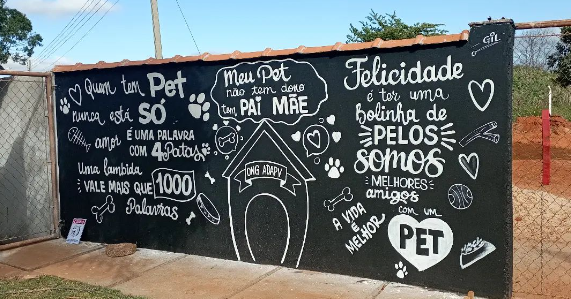 Quem tem Pet
nunca está SÓ
amor É UMA PALAVRA
COM 4 Patas
Uma lambida
VALE MAIS QUE 1000
Palavras
Meu Pet
não tem dono
tem PAI MÃE
ONG ADAPV
Felicidade
é ter uma
bolinha de
PELOS
SOMOS
MELHORES
amigos
A VIDA
É MELHOR
com um
PET
GIL